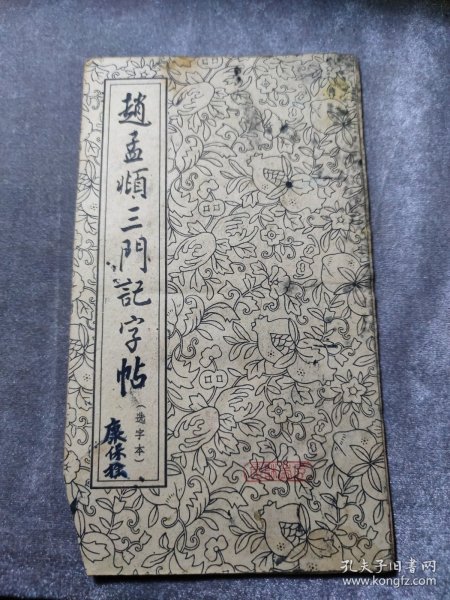 趙孟頫三門記字帖
(选字本)
康保
孔夫子旧书网
www.kongfz.com